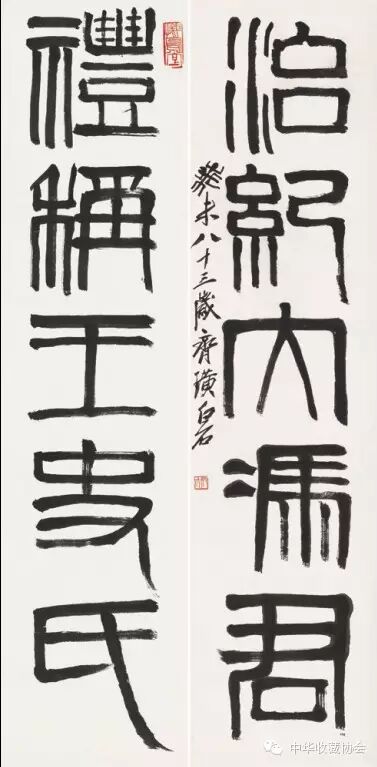 治紀大馮君
癸未八十三歲齊璜白石
禮稱王史氏
中华收藏协会